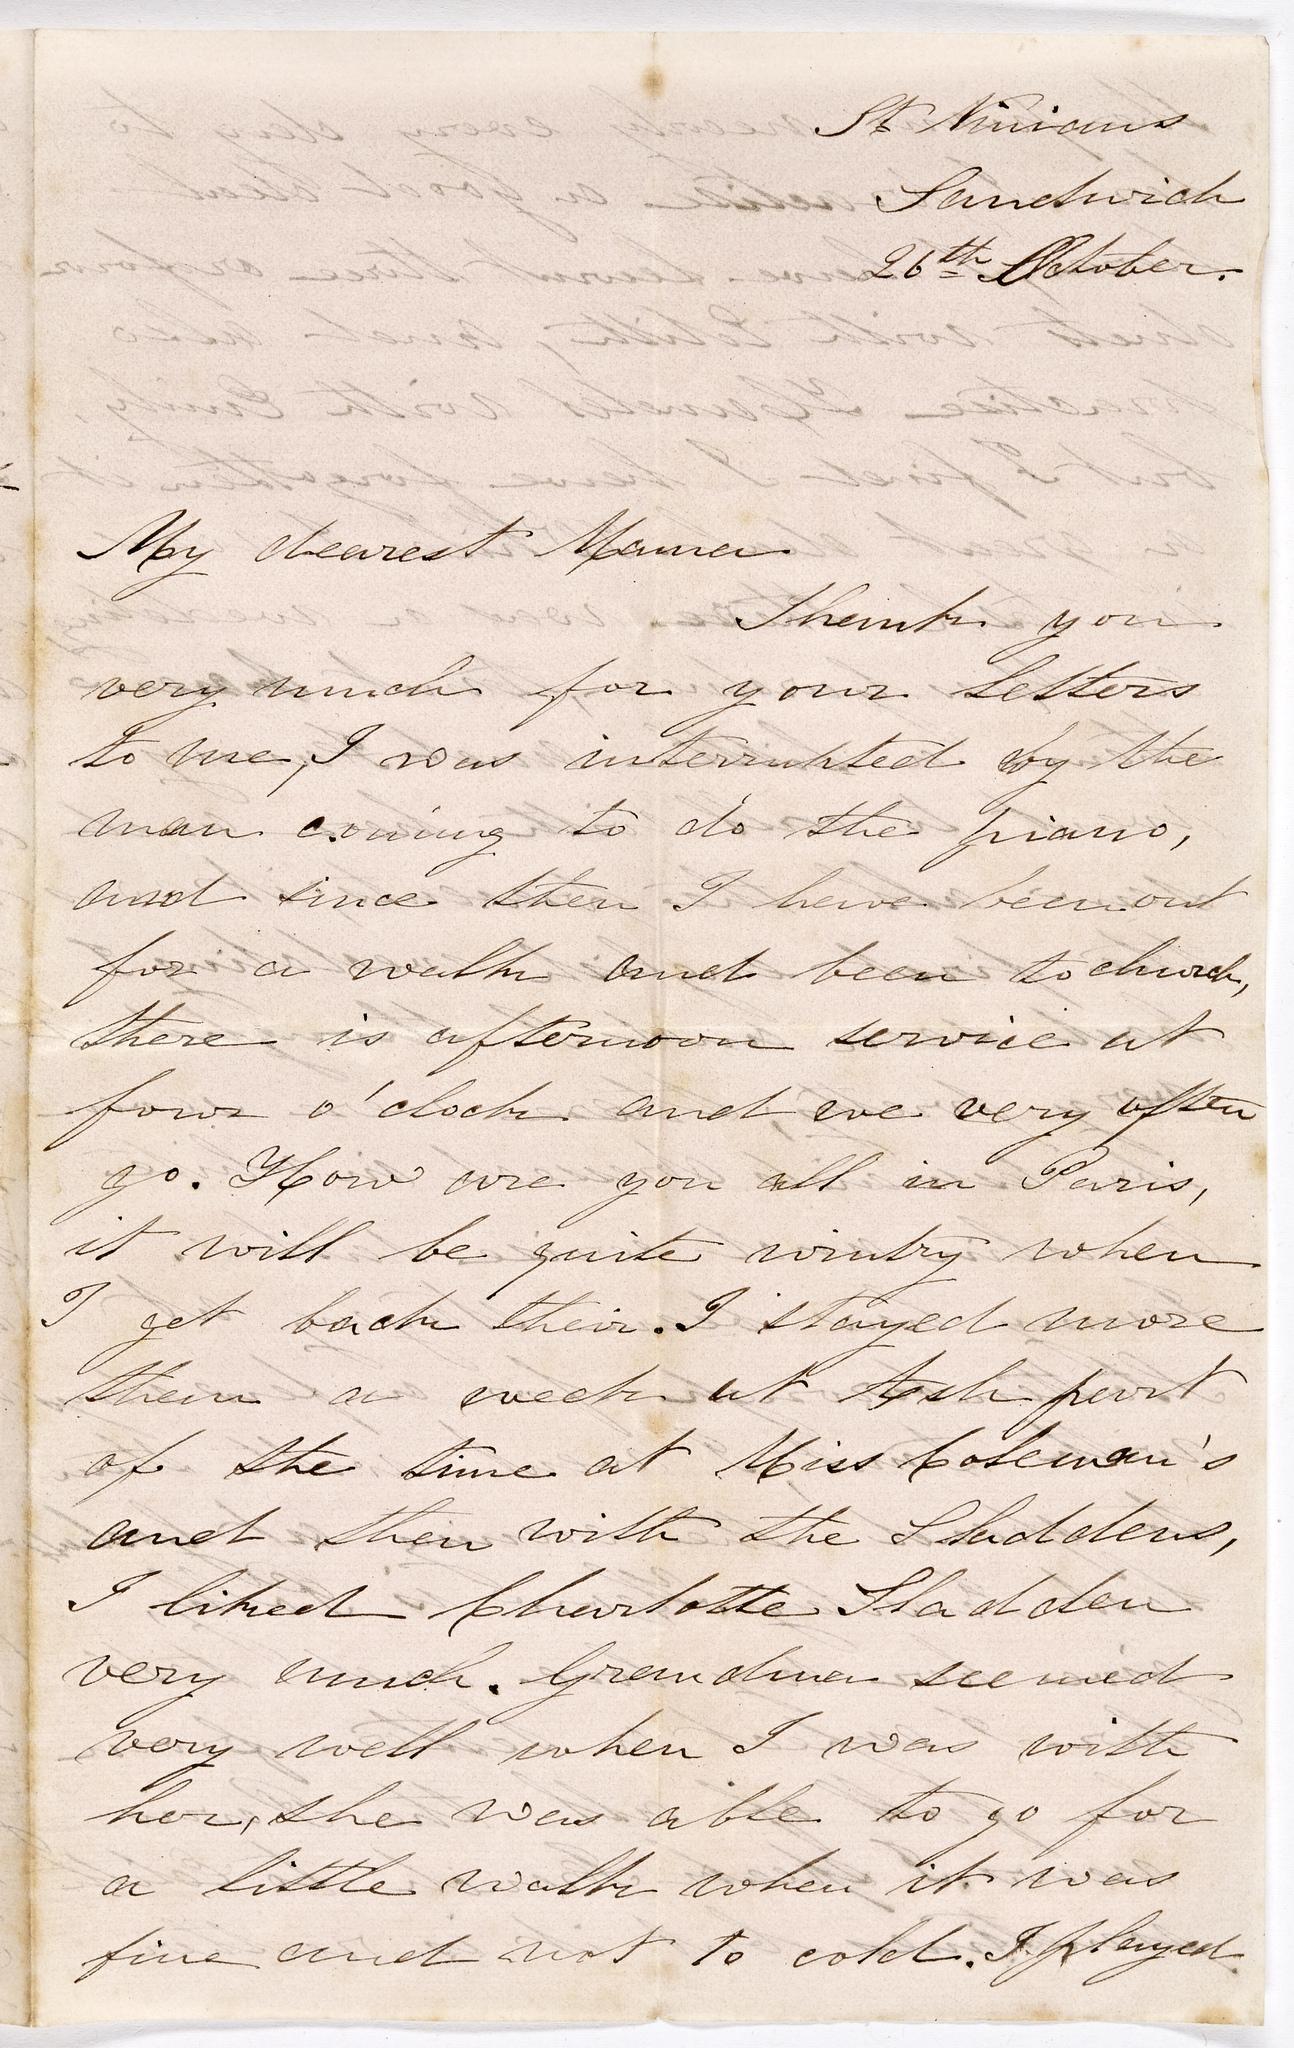 St Ninians
Sandwich
26th October.
My dearest Mama
Thank you
very much for your letters
to me, I was interrupted by the
man coming to do the piano,
and since then I have been out
for a walk and been to church,
there is afternoon service at
four o'clock and we very often
go. How are you all in Paris,
it will be quite wintry when
I get back their. I stayed more
than a week at Ash part
of the time at Miss Coleman's
and then with the Sladdens,
I liked Charlotte Sladden
very much. Grandma seemed
very well when I was with
her, she was able to go for
a little walk when it was
fine and not to cold. I played